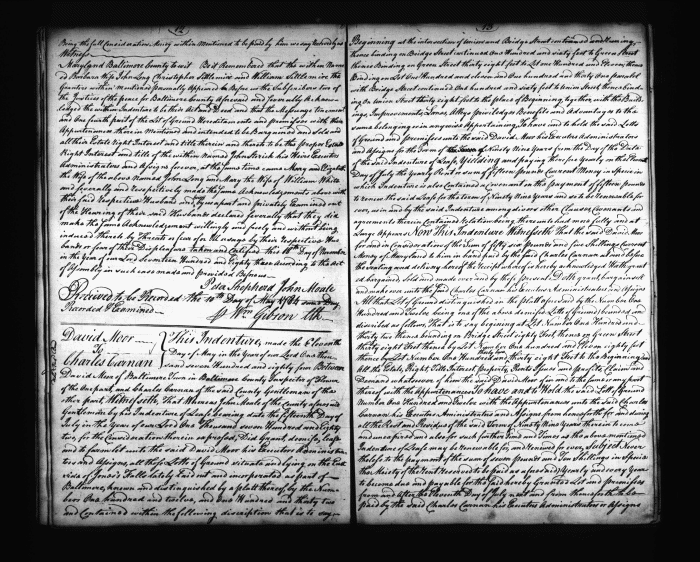 Being the full Consideration Money within Mentioned to be paid by him we say Received by us
Witness
Maryland Baltimore County to wit Be it Remembered that the within Named
Barbara Wife John Long Christopher Sittlemire and William Sittlemire the
Grantors within Mentioned personally appeared Before us the Subscribers two of
the Justices of the peace for Baltimore County Aforesaid and severally Acknow
ledged the within Indenture to be their Act and Deed and that the Messuage Tenement
and one fourth part of the Lot of Ground Hereditaments and premises with their
Appurtenances therein Mentioned and intended to be Bargained and Sold and
all their Estate Right Interest and title therein and thereto to be the proper Estate
Right Interest and title of the within Named John Strick his Heirs Executors
Administrators and Assigns forever, at the same time came Mary and Elizabeth
the Wife of the above Named John Long and Mary the Wife of William White
and severally and respectively made the same Acknowledgements above with
their said respective Husbands and being apart and privately Examined out
of the Hearing of their said Husbands declare severally that they did
make the same Acknowledgement willingly and freely and without being
induced thereto by Threats or fear of ill usage by their Respective Hus
bands or fear of their Displeasure Taken and Certified this 18th Day of November
in the year of our Lord Seventeen Hundred and Eighty three according to the act
of Assembly in such case made and provided Before us
Peter Shepherd John Moale
Received to be Recorded the 10th Day of May 1784 same Day
Recorded & Examined
Wm Gibson Clk
David Moor
To
Charles Carnan
This Indenture, made the Eleventh
Day of May in the year of our Lord One thou
sand seven hundred and Eighty four Between
David Moor of Baltimore Town in Baltimore County Inspector of Flour
of the One part, and Charles Carnan of the said County Gentleman of the
other part Witnesseth That Whereas John Moale of the County aforesaid
Gentleman by his Indenture of Lease bearing date the fifteenth Day of
July in the Year of our Lord One Thousand seven Hundred and Eighty
two, for the Consideration therein expressed, Did Grant demise, lease
and to farm let unto the said David Moor his Executors Administra
tors and Assigns, all those Lotts of Ground situate and lying on the East
side of Jones's Falls lately laid out and incorporated as part of
Baltimore, known and distinguished by a platt thereof by the Num
bers One hundred and twelve, and One Hundred and thirty two
and Contained within the following discription that is to say,
Beginning at the intersection of Comet and Bridge Street continued and Running
thence binding on Bridge Street continued One Hundred and sixty feet to Green Street
thence Binding on Green Street thirty eight feet to Lot One Hundred and Eleven, thence
Binding on Lot One Hundred and eleven and One hundred and thirty One parallel
with Bridge Street continued One Hundred and sixty feet to Comet Street, thence bind
ing on Comet Street thirty eight feet to the place of Beginning, together with the Build
ings Improvements, Lanes, Alleys priviledges Benefits and Advantages to the
same belonging or in any wise Appertaining, To have and to hold the said Lotts
of Ground and premises unto the said David Moor his Executors Administrators
and Assigns for the Term of Ninety Nine Years from the Day of the Date
of the said Indenture of Lease, Yielding and paying therefor Yearly on the
Day of July the Yearly Rent or sum of fifteen pounds Current Money in Specie in
which Indenture is also Contained a Covenant on the payment of fifteen pounds
to renew the said Lease for the Term of Ninety Nine Years and so to be Renewable for
ever, as in and by the said Indenture and divers other Clauses Covenants and
agreements therein Contained Relation being thereunto had more fully and at
Large Appears Now This Indenture Witnesseth That the said David Moor
for and in Consideration of the Sum of fifty six pounds and five Shillings Current
Money of Maryland to him in hand paid by the said Charles Carnan at and before
the sealing and delivery hereof the receipt whereof is hereby acknowledged Hath grant
ed bargained, sold and made over and by these presents Doth grant, bargain sell
and make over unto the said Charles Carnan his Executors Administrators and Assigns
All that Lot of Ground distinguished in the platt aforesaid by the Number One
Hundred and Twelve being one of the above demised Lotts of Ground, bounded and
described as follows, that is to say beginning at Lot Number One Hundred and
thirty two thence bounding on Bridge Street Eighty feet, thence on Green Street
thirty Eight feet thence by Lot Number One hundred and Eleven eighty feet
thence by Lot Number One Hundred and thirty two, thirty Eight feet to the Beginning, and
all the Estate, Right, Title, Interest, property, Rents, Issues and profits Claim and
Demand whatsoever of him the said David Moor of in and to the same or any part
thereof with the appurtenances To have and to Hold the said Lott of Ground
Number One Hundred and Twelve with the Appurtenances unto the said Charles
Carnan his Executors Administrators and Assigns from henceforth for and during
all the Rest and Residue of the said term of Ninety Nine Years therein to come
and unexpired and also for such further Time and Times as the above mentioned
Indenture of Lease may be renewable for and Renewed for ever, Subject Never
theless to the payment of the sum of seven pounds and Ten Shillings in Specie
(the Moiety of the Rent Reserved to be paid as aforesaid) Yearly and every Year
to become due and payable for the said hereby Granted Lot and premises
from and after the Eleventh Day of July next and from thenceforth to be
paid by the said Charles Carnan his Executors Administrators or Assigns